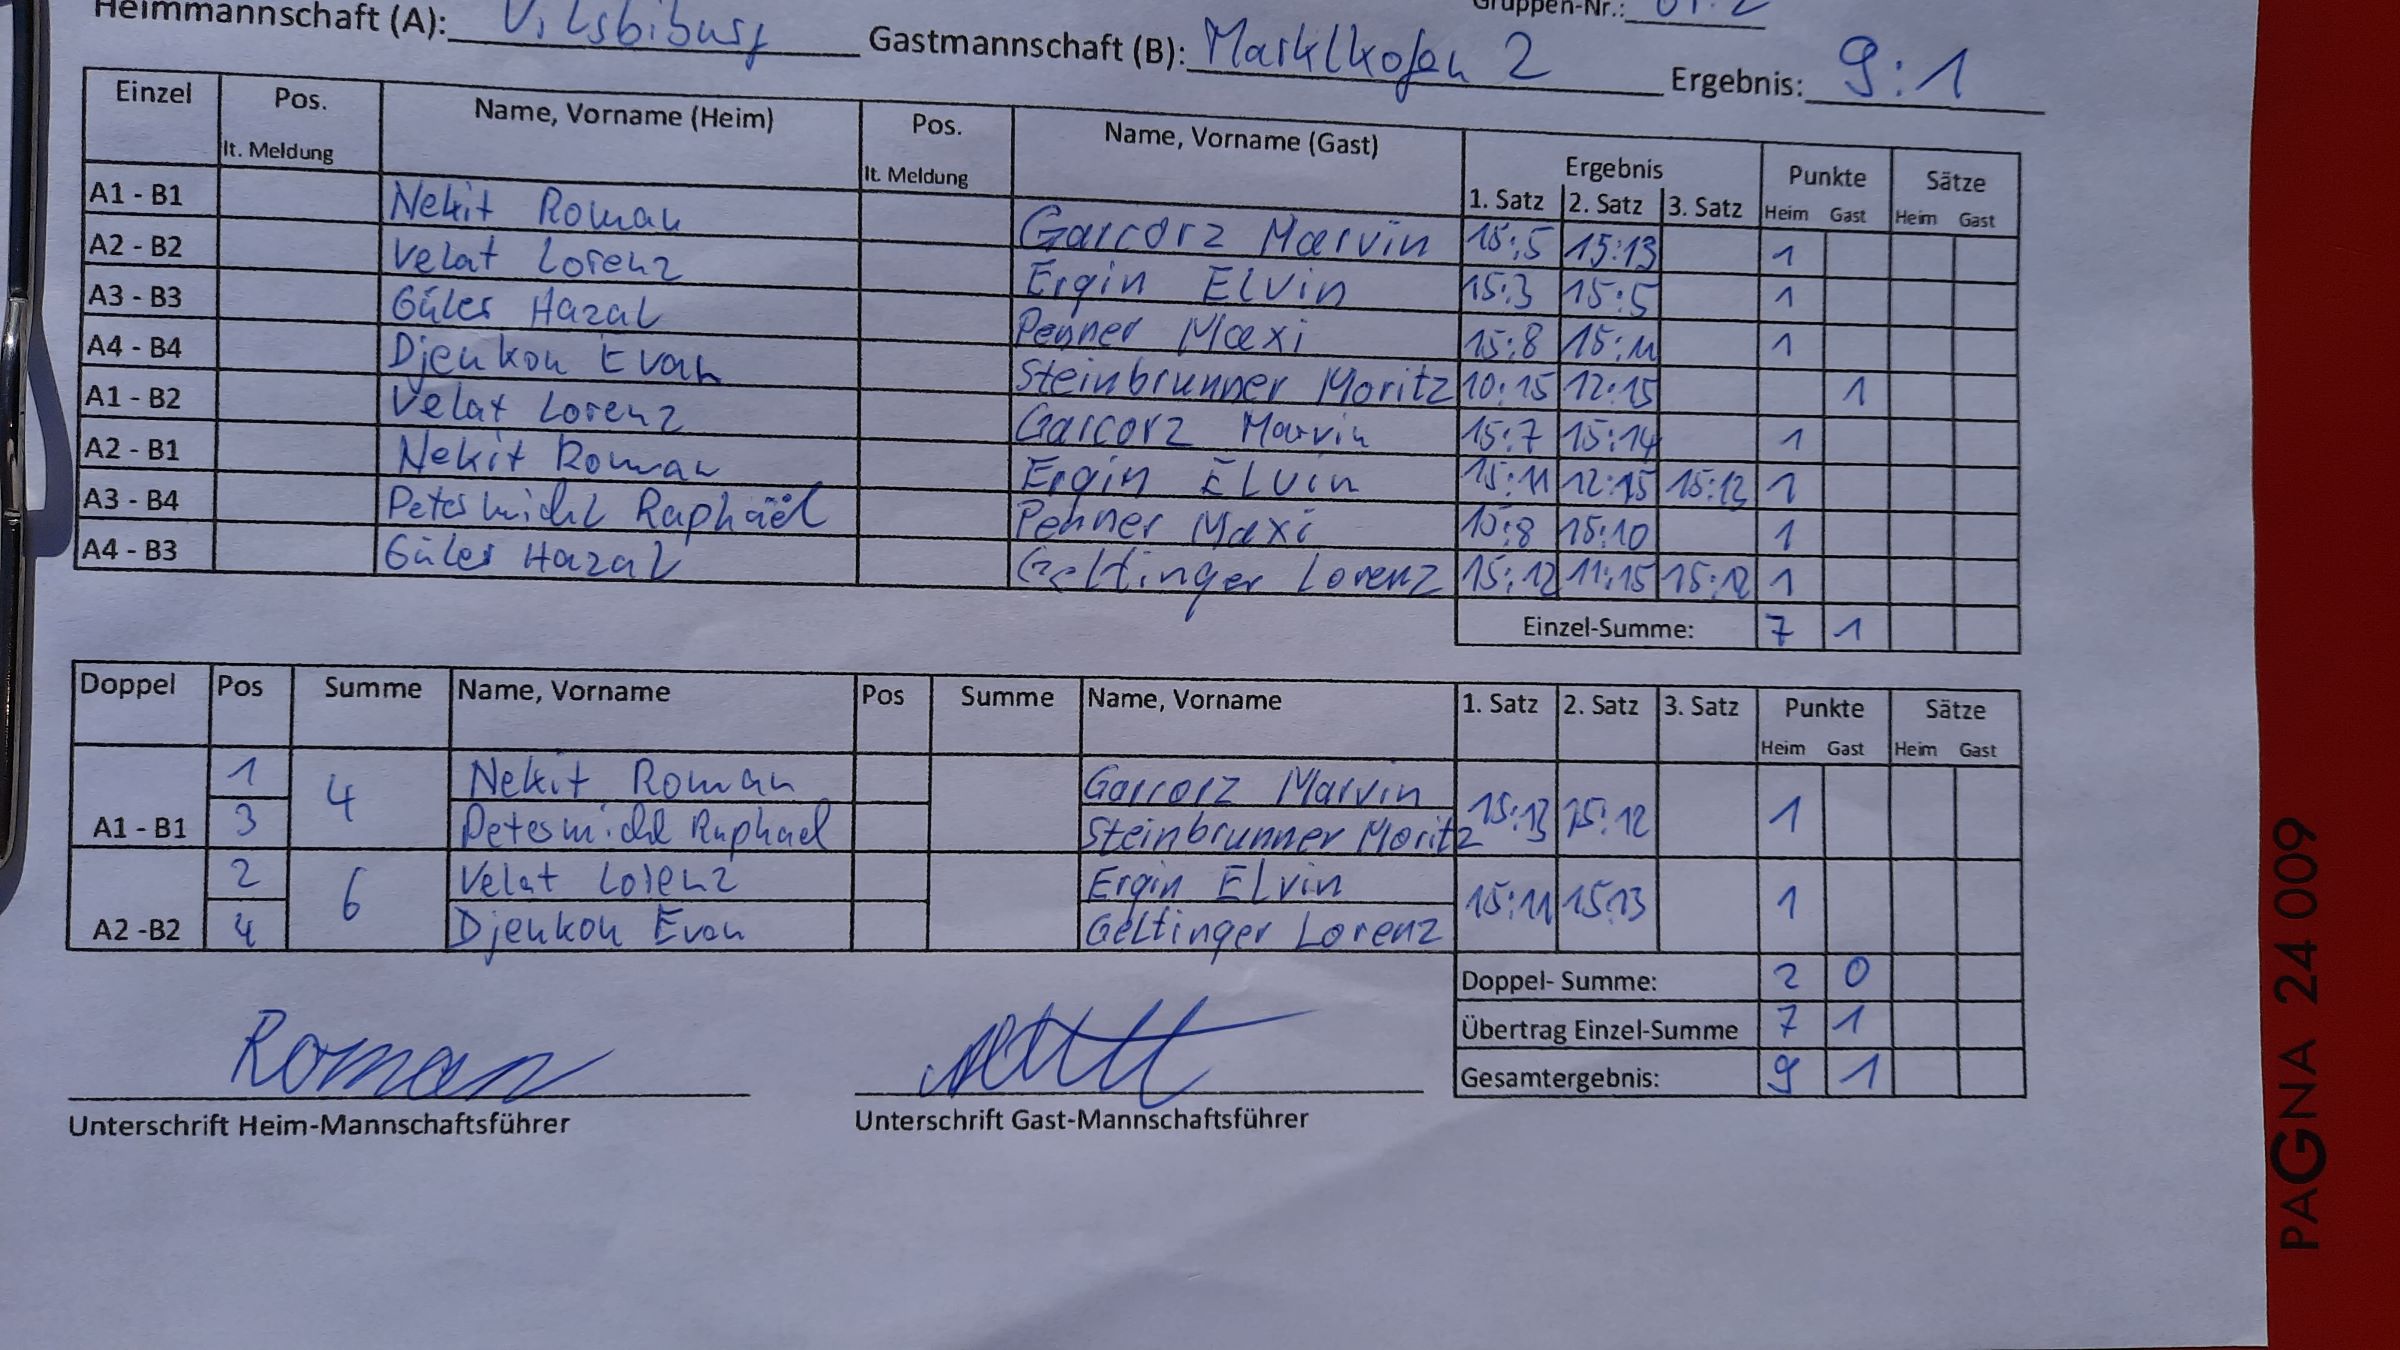 Heimmannschaft (A): Vilsbiburg Gastmannschaft (B): Marklkofen 2 Gruppen-Nr.: Ergebnis: 9:1
Einzel Pos. lt. Meldung Name, Vorname (Heim) Pos. lt. Meldung Name, Vorname (Gast) Ergebnis 1. Satz 2. Satz 3. Satz Punkte Heim Gast Sätze Heim Gast
A1 - B1 Nekit Roman Garcorz Marvin 15:5 15:13 1
A2 - B2 Velat Lorenz Ergin Elvin 15:3 15:5 1
A3 - B3 Güler Hazal Penner Maxi 15:8 15:11 1
A4 - B4 Djenkou Evan Steinbrunner Moritz 10:15 12:15 1
A1 - B2 Velat Lorenz Garcorz Marvin 15:7 15:14 1
A2 - B1 Nekit Roman Ergin Elvin 15:11 12:15 15:12 1
A3 - B4 Petermichl Raphaël Penner Maxi 15:8 15:10 1
A4 - B3 Güler Hazal Geltinger Lorenz 15:12 11:15 15:12 1
Einzel-Summe: 7 1
Doppel Pos Summe Name, Vorname Pos Summe Name, Vorname 1. Satz 2. Satz 3. Satz Punkte Heim Gast Sätze Heim Gast
1 Nekit Roman Garcorz Marvin
A1 - B1 3 4 Petermichl Raphael Steinbrunner Moritz 15:13 15:12 1
2 Velat Lorenz Ergin Elvin
A2 -B2 4 6 Djenkou Evan Geltinger Lorenz 15:11 15:13 1
Doppel- Summe: 2 0
Übertrag Einzel-Summe 7 1
Gesamtergebnis: 9 1
Roman
Unterschrift Heim-Mannschaftsführer Unterschrift Gast-Mannschaftsführer
PAGNA 24 009